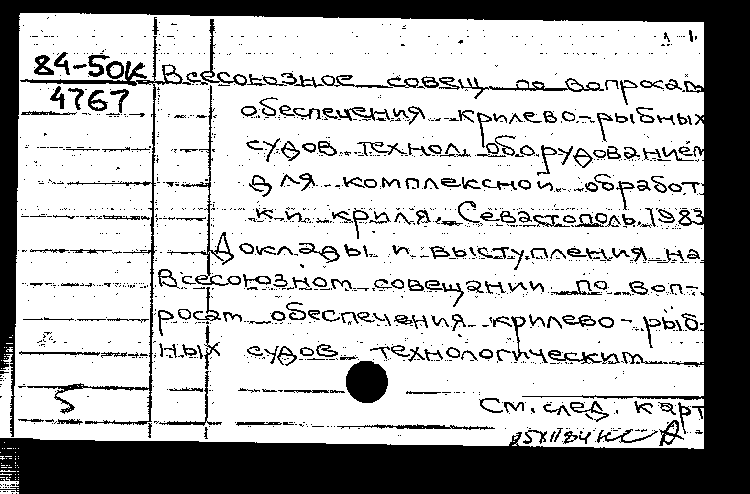 84-50К Всесоюзное совещ. по вопросам
4767 обеспечения крилево-рыбных
судов технол. оборудованием
для комплексной обработ-
ки криля. Севастополь. 1983
Доклады и выступления на
Всесоюзном совещании по воп-
росам обеспечения крилево-рыб-
ных судов технологическим
5
См. след. карт